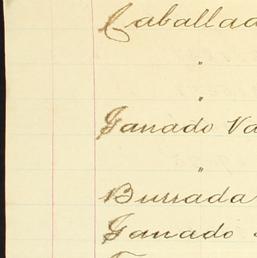 Caballad
"
"
Ganado Va
"
Burrada
Ganado